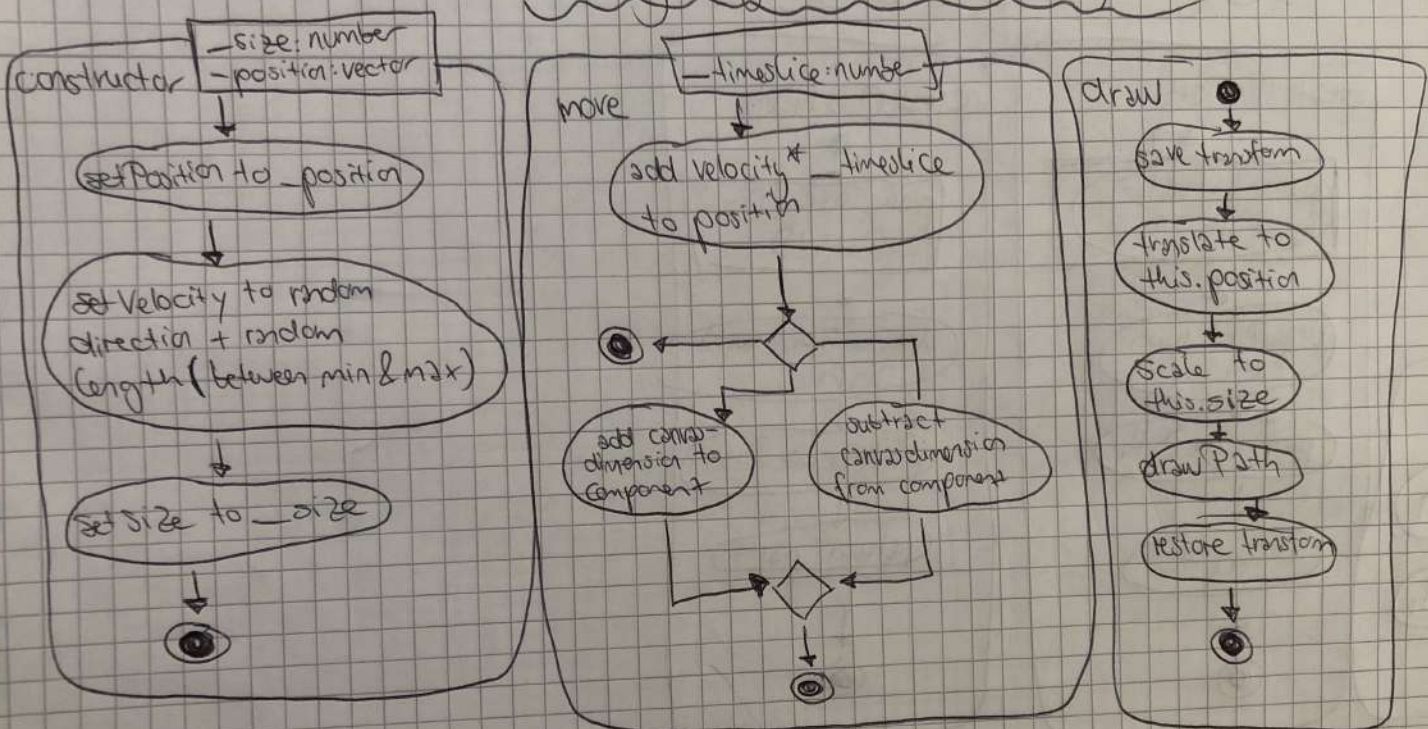 _size: number
_position: vector
constructor
setPosition to _position
set Velocity to random
direction + random
length (between min & max)
set size to _size
_timeslice: numbe
move
add velocity * _timeslice
to position
add canvas-
dimension to
component
subtract
canvasdimension
from component
draw
save transform
translate to
this.position
scale to
this.size
draw Path
restore transform